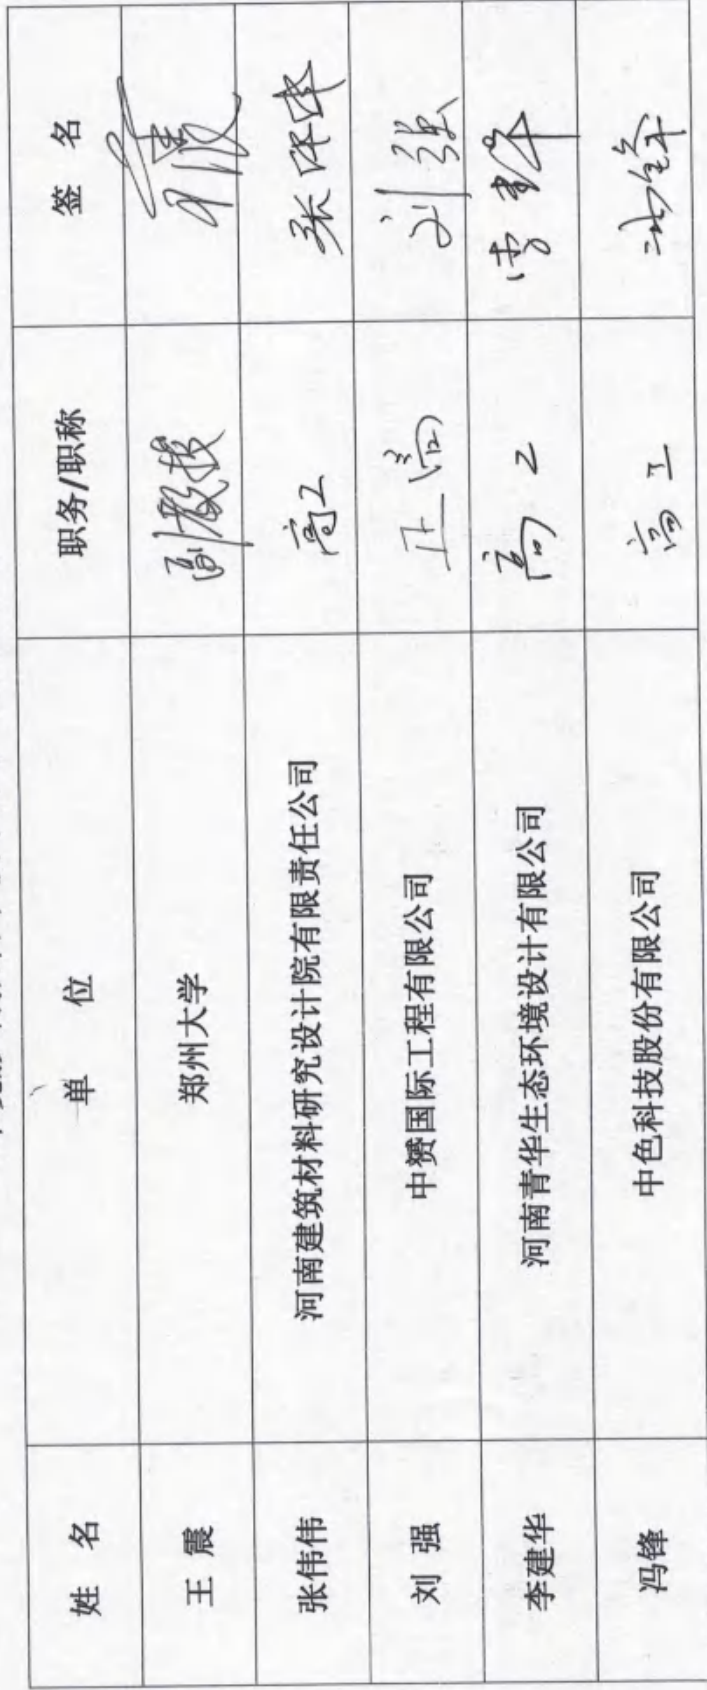 姓 名 单 位 职务/职称 签 名
王 震 郑州大学 副教授 王震
张伟伟 河南建筑材料研究设计院有限责任公司 高工 张伟伟
刘 强 中赟国际工程有限公司 正高 刘强
李建华 河南青华生态环境设计有限公司 高工 李建华
冯锋 中色科技股份有限公司 高工 冯锋